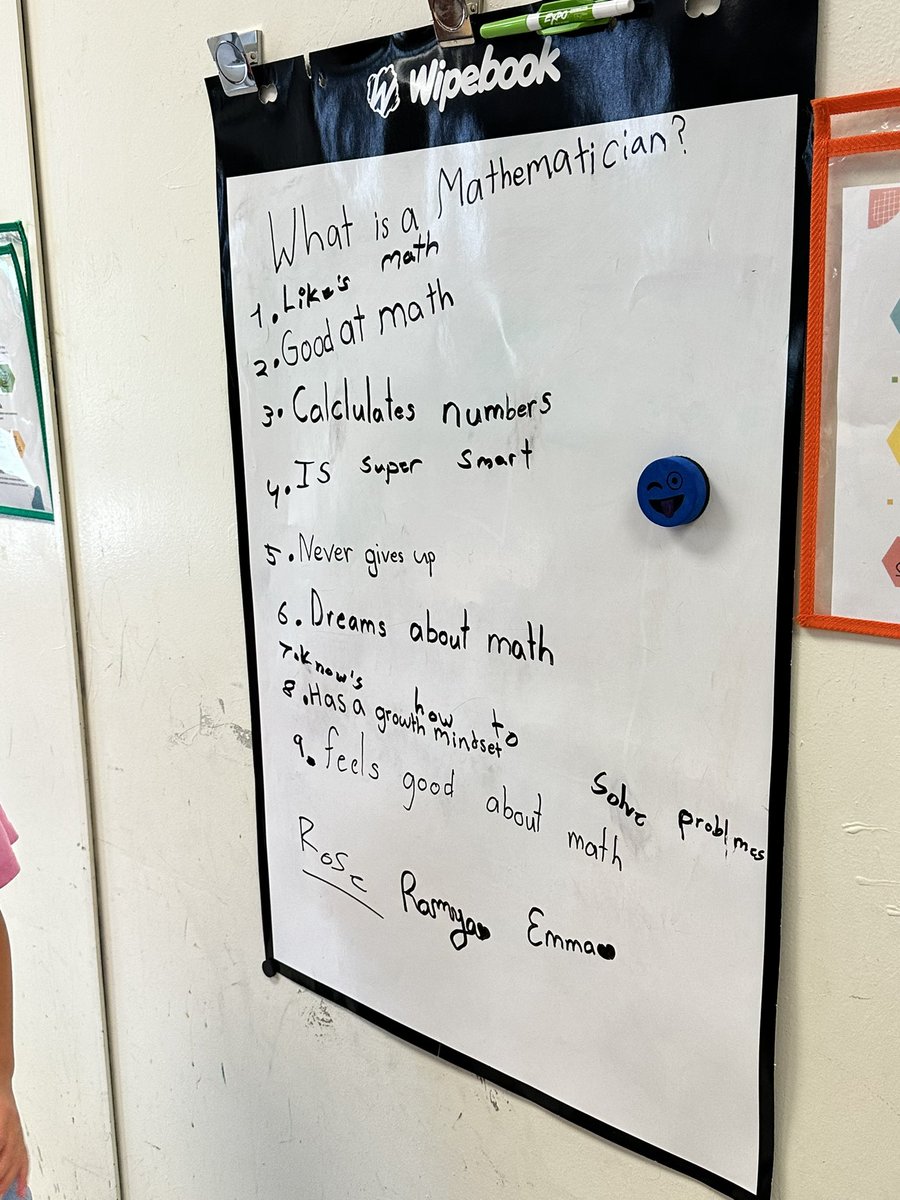 EXPO
Wipebook
What is a Mathematician?
1. Like's math
2. Good at math
3. Calclulates numbers
4. Is super smart
5. Never gives up
6. Dreams about math
7. Know's how to solve problmes
8. Has a growth mindset
9. feels good about math
Rose Ramya Emma